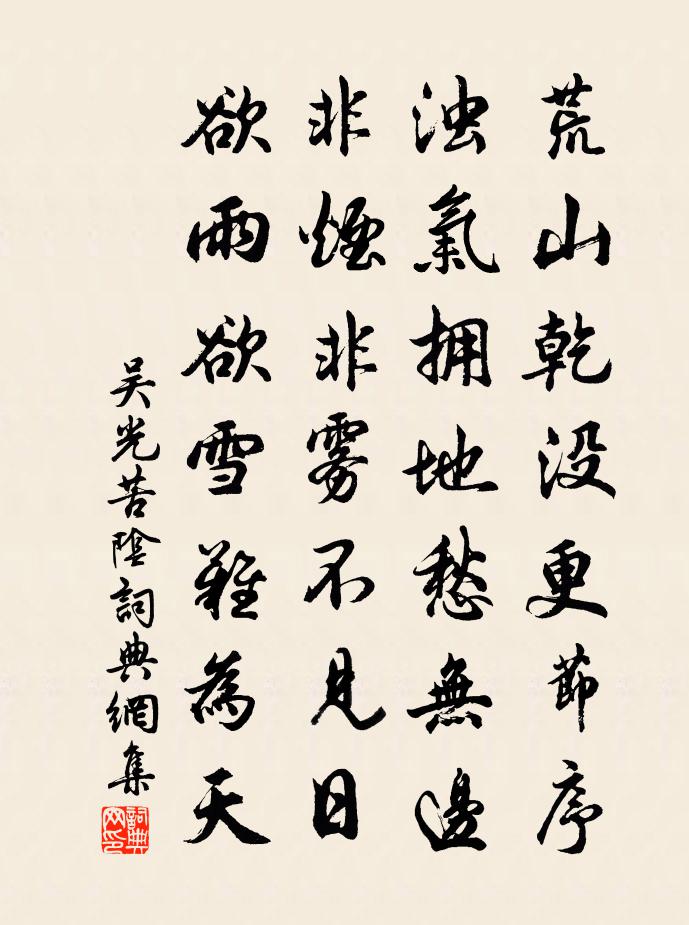 荒山乾没更節序
浊氣拥地愁無邊
非煙非雾不見日
欲雨欲雪難為天
吴光苦陰詞典網集
詞典網印